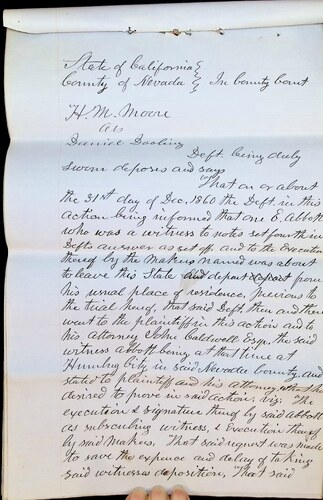 State of California }
County of Nevada } In County Court
H. M. Moore
vs
Daniel Dooling
Deft. being duly
sworn deposes and says
That on or about
the 31st day of Dec. 1860 the Deft. in this
action being informed that one E. Abbott
who was a witness to notes set fourth in
Defts answer as set off, and to the Execution
thereof by the makers named was about
to leave this State and depart from
his usual place of residence, previous to
the trial thereof, that said Deft then and there
went to the plaintiff in this action and to
his Attorney John Caldwell Esqr, the said
witness Abbott being at that time at
Humbug City in said Nevada County, and
stated to plaintiff and his attorney what he
desired to prove in said action, viz; The
execution & signature thereof by said Abbott
as subscribing witness, & Execution thereof
by said makers. That said request was made
to save the expence and delay of taking
said witnesses deposition, That said